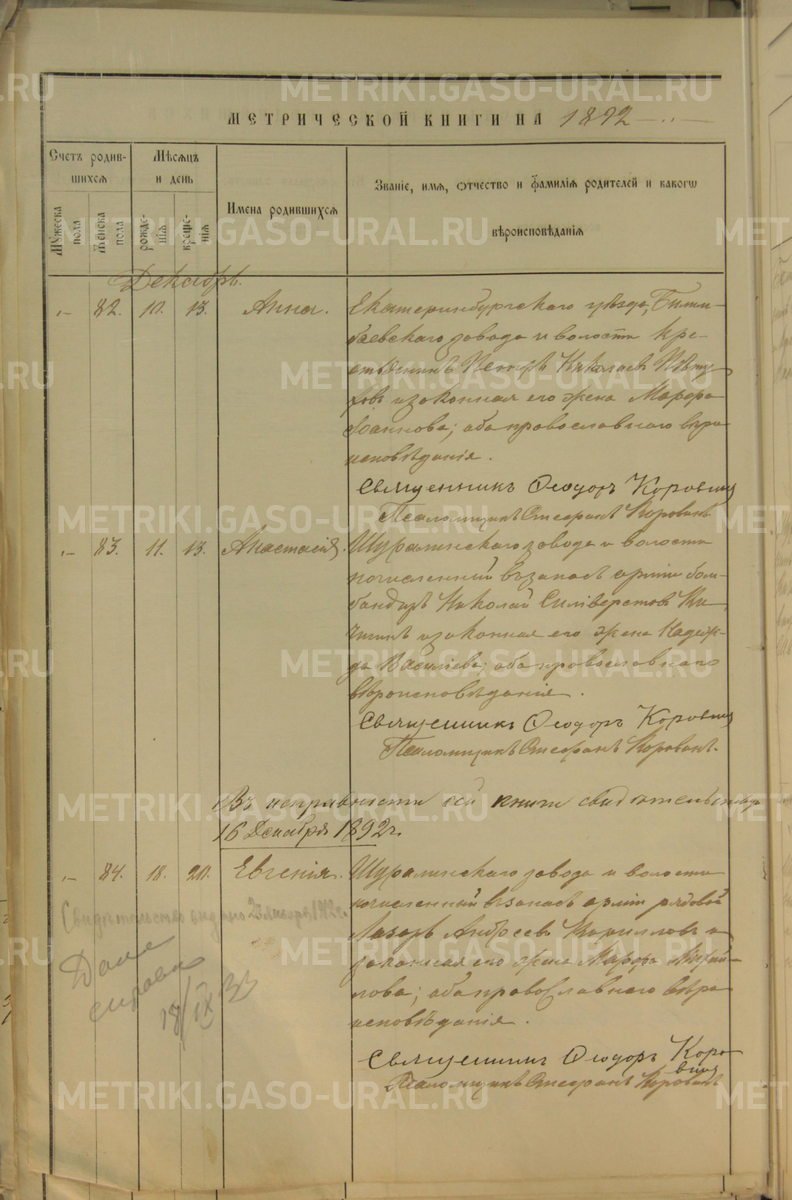 МЕТРИЧЕСКОЙ КНИГИ НА 1892
Счетъ родив-
шихся
Мѣсяцъ
и день
Имена родившихся
Званіе, имя, отчество и фамилія родителей и какого
вѣроисповѣданія
Мужеска пола
Женска пола
рожде-
нія
креще-
нія
Декабрь.
82. 10. 13. Анна. Екатеринбургскаго уѣзда, Билим-
баевскаго завода и волости кре-
стьянинъ Петръ Николаевъ
и законная его жена Марѳа
Іоаннова; оба православнаго вѣро
исповѣданія.
Священникъ Ѳеодоръ Коровинъ
Псаломщикъ Стефанъ Коровинъ.
83. 11. 13. Анастасія. Шуралинскаго завода и волости
исчисленный въ запасъ арміи бом-
бандиръ Николай Силиверстовъ Ки-
чигинъ и законная его жена Надеж-
да Васильева; оба православнаго
вѣроисповѣданія.
Священникъ Ѳеодоръ Коровинъ
Псаломщикъ Стефанъ Коровинъ.
Въ исправности сей книги свидѣтельствую
16 Декабря 1892 г.
84. 18. 20. Евгенія. Шуралинскаго завода и волости
исчисленный въ запасъ арміи рядовой
Лазарь Андреевъ Кирилловъ и
законная его жена Марѳа Михай-
лова; оба православнаго вѣро
исповѣданія.
Священникъ Ѳеодоръ Коро-
винъ
Псаломщикъ Стефанъ Коровинъ
Свидѣтельство выдано
Дана
справка
13/IX 33
METRIKI.GASO-URAL.RU